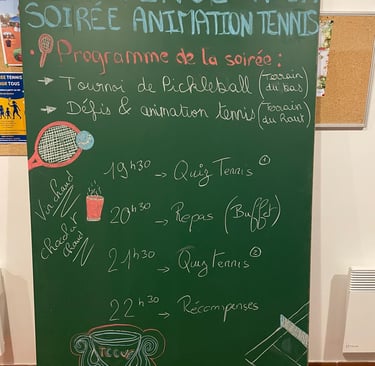 SOIRÉE ANIMATION TENNIS
Programme de la soirée :
→ Tournoi de Pickleball (Terrain du bas)
→ Défis & animation tennis (Terrain du Haut)
19h30 → Quiz Tennis ①
Vin chaud
20h30 → Repas (Buffet)
chocolat chaud
21h30 → Quiz Tennis ②
22h30 → Récompenses